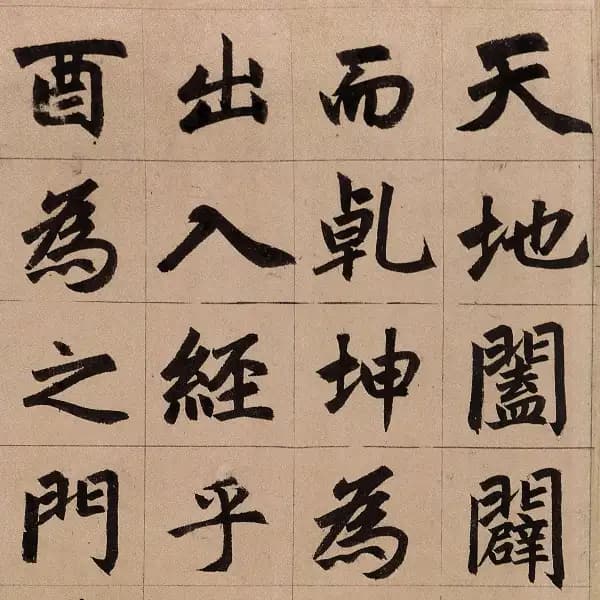 天地闔闢
而乹坤為
出入經乎
酉為之門